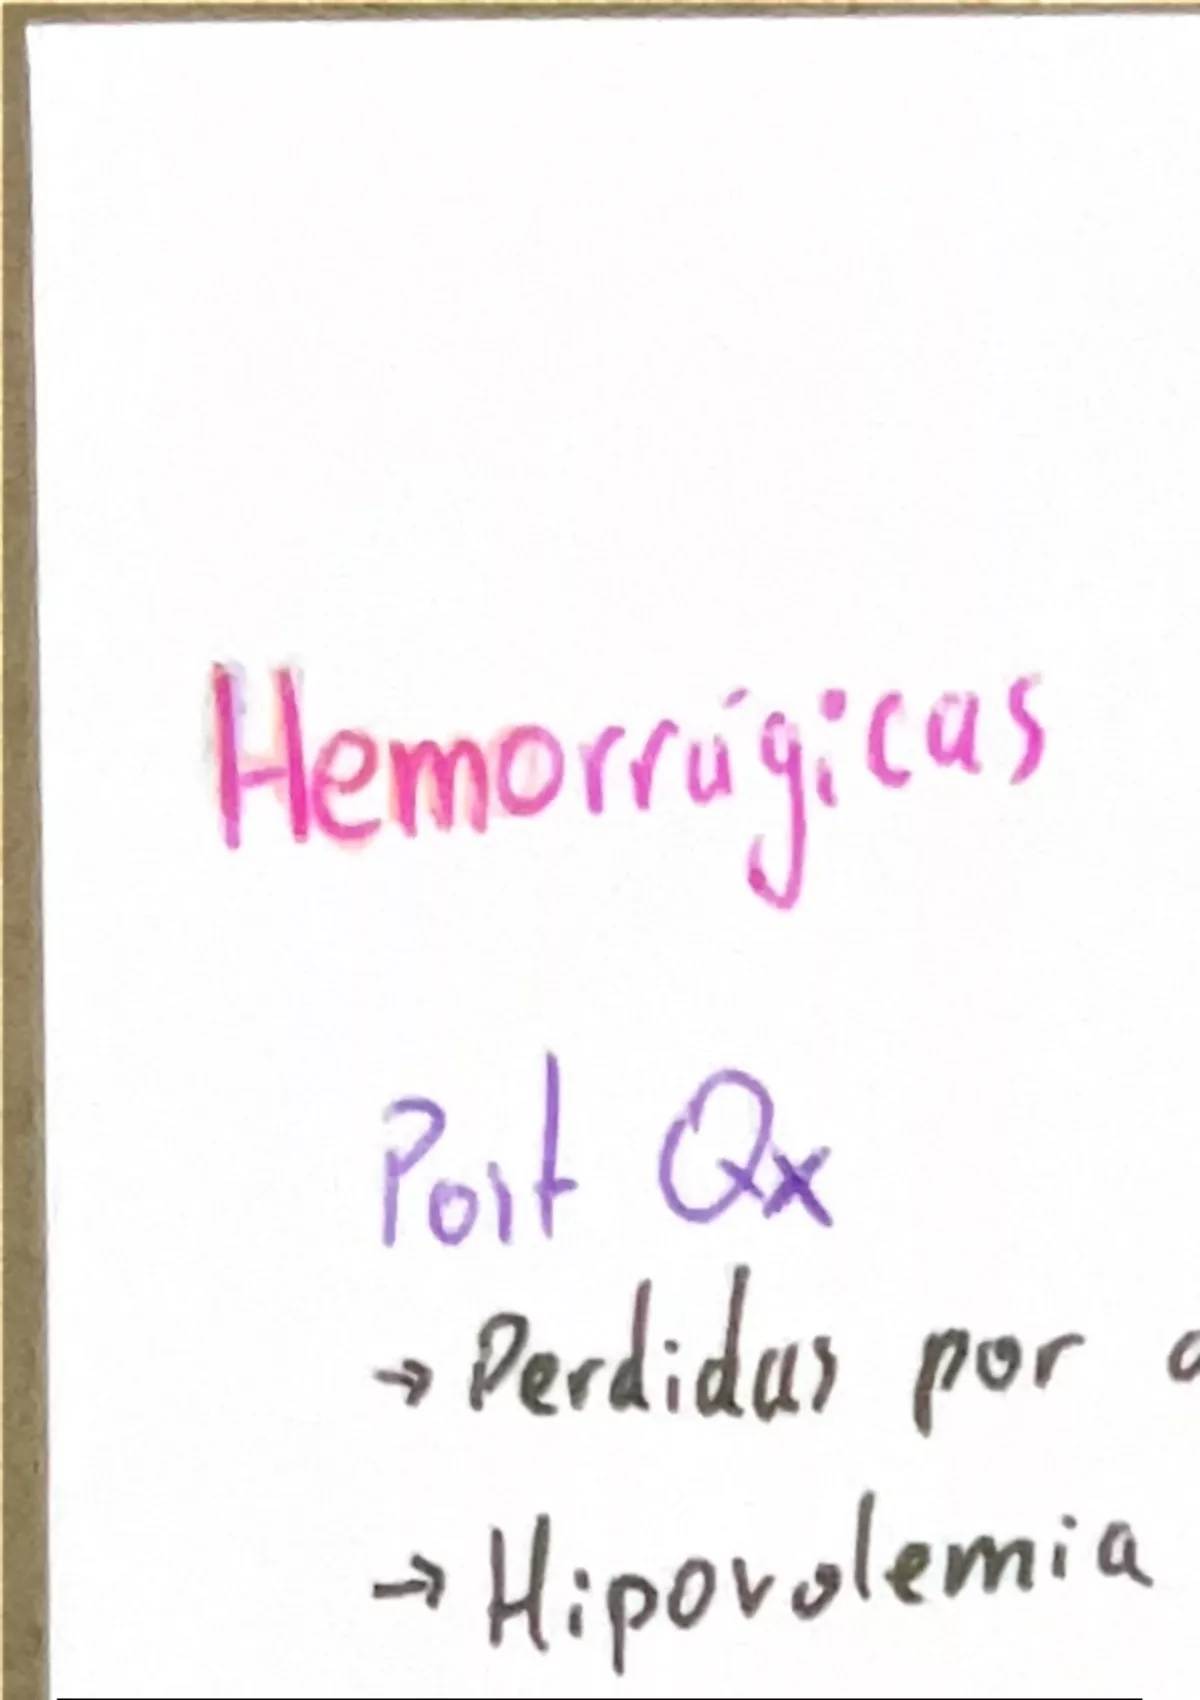 Hemorrágicas
Post Qx
→ Perdidas por
→ Hipovolemia